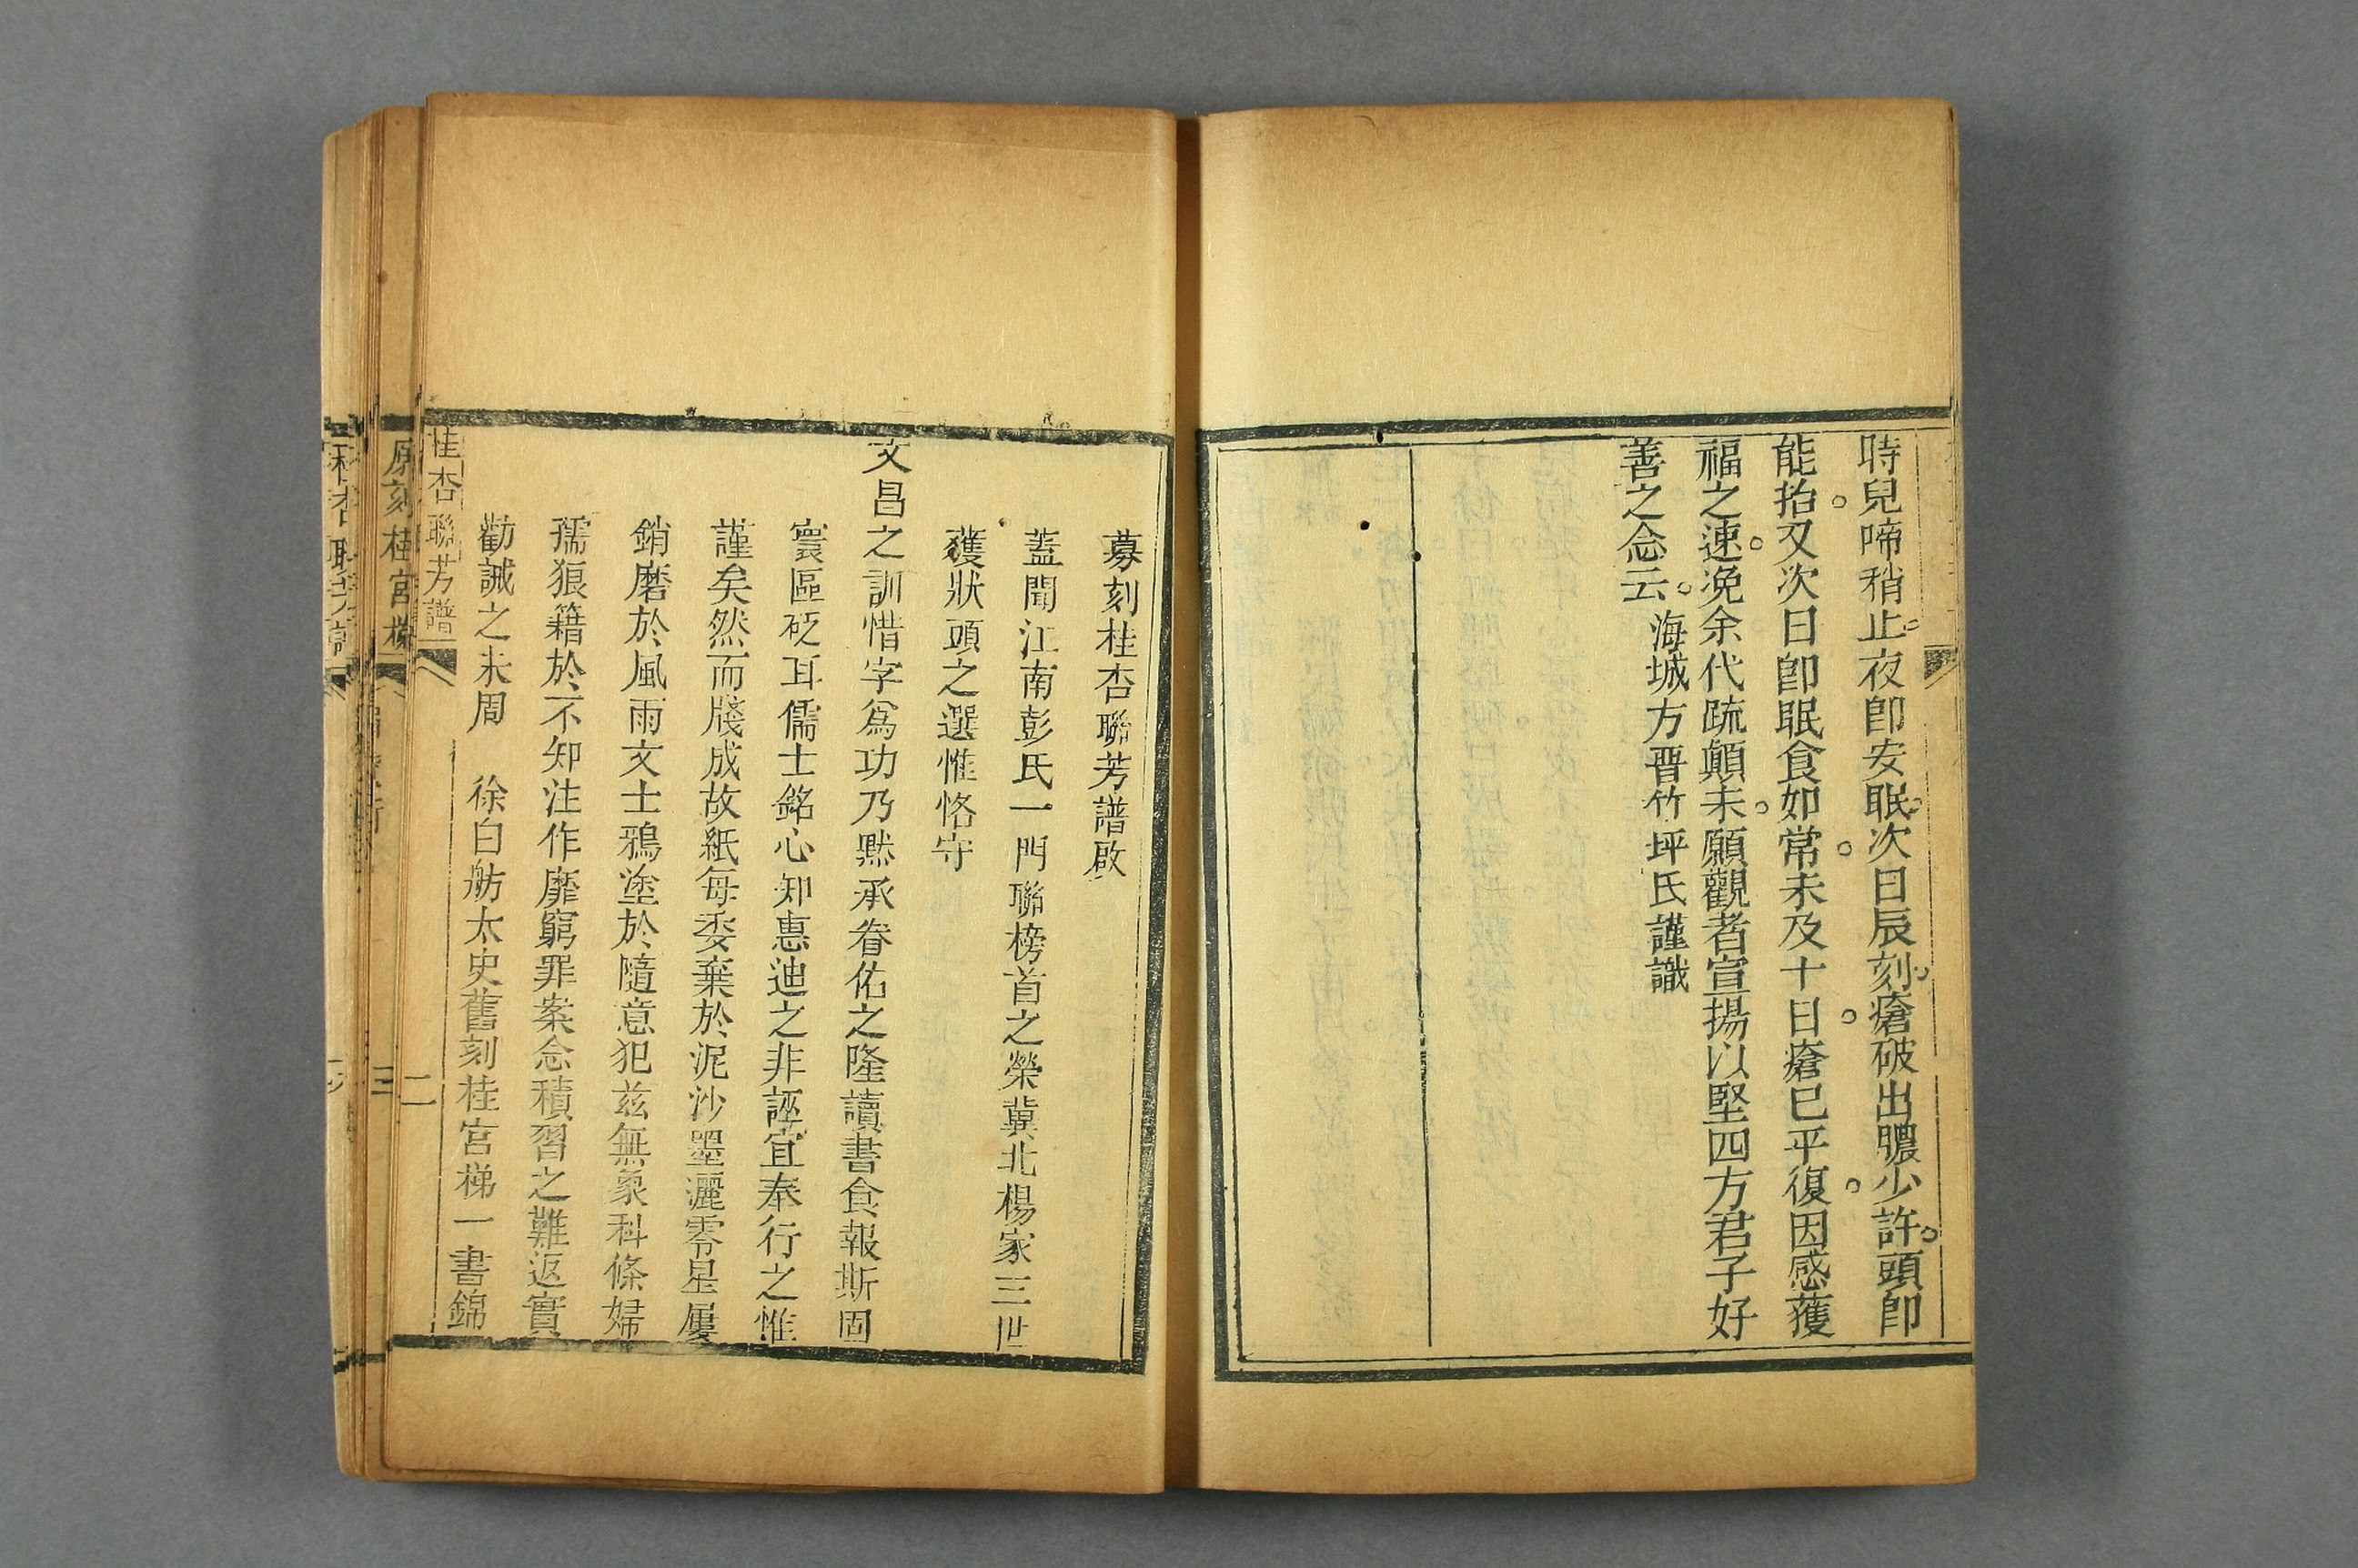 時兒啼稍止夜卽安眠次日辰刻瘡破出膿少許頭卽
能抬又次日卽眠食如常未及十日瘡已平復因感獲
福之速浼余代疏顚末願觀者宣揚以堅四方君子好
善之念云
海城方晋竹坪氏謹識
募刻桂杏聯芳譜啟
蓋聞江南彭氏一門聯榜首之榮冀北楊家三世
獲狀頭之選惟恪守
文昌之訓惜字爲功乃黙承眷佑之隆讀書食報斯固
寰區砭耳儒士銘心知惠迪之非誣宜奉行之惟
謹矣然而牋成故紙每委棄於泥沙墨灑零星屢
銷磨於風雨文士鴉塗於隨意犯兹無象科條婦
孺狼籍於不知注作靡窮罪案念積習之難返實
勸誡之未周　徐白舫太史舊刻桂宮梯一書錦
桂杏聯芳譜
二
原刻桂宮梯
三